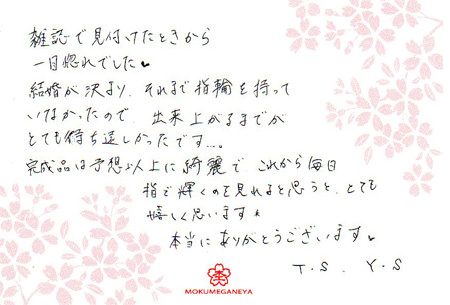 雑誌で見付けたときから
一目惚れでした♥
結婚が決まり、それまで指輪を持って
いなかったので、出来上がるまでが
とても待ち遠しかったです...。
完成品は予想以上に綺麗で、これから毎日
指で輝くのを見れると思うと、とても
嬉しく思います★
本当にありがとうございます♥
T.S. Y.S
MOKUMEGANEYA